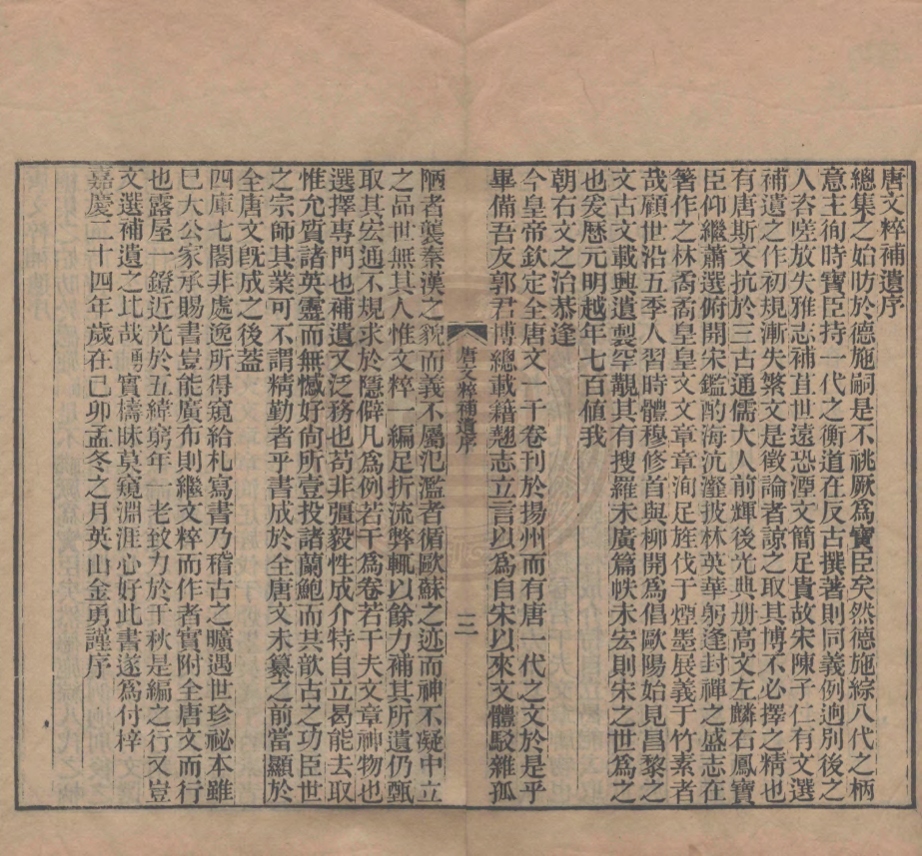 唐文粹補遺序
總集之始昉於德施嗣是不祧厥爲寶臣矣然德施綜八代之柄
意主徇時寶臣持一代之衡道在反古撰著則同義例逈別後之
人咨嗟放失雅志補苴世遠恐湮文簡足貴故宋陳子仁有文選
補遺之作初規漸失繁文是徵論者諒之取其博不必擇之精也
有唐斯文抗於三古通儒大人前輝後光典册高文左麟右鳳寶
臣仰繼蕭選俯開宋鑑酌海沆瀣披林英華躬逢封禪之盛志在
箸作之林矞矞皇皇文文章章洵足旌伐于煙墨展義于竹素者
哉顧世沿五季人習時體穆修首與柳開爲倡歐陽始見昌黎之
文古文載興遺製罕覯其有搜羅未廣篇帙未宏則宋之世爲之
也爰歷元明越年七百值我
朝右文之治恭逢
今皇帝欽定全唐文一千卷刊於揚州而有唐一代之文於是乎
畢備吾友郭君博總載籍翹志立言以爲自宋以來文體駁雜孤
唐文粹補遺序
三
陋者襲秦漢之貌而義不屬氾濫者循歐蘇之迹而神不凝中立
之品世無其人惟文粹一編足折流弊輒以餘力補其所遺仍甄
取其宏通不規求於隱僻凡爲例若干爲卷若干夫文章神物也
選擇專門也補遺又泛務也苟非彊毅性成介特自立曷能去取
惟允質諸英靈而無憾好尙所壹投諸蘭鮑而共歆古之功臣世
之宗師其業可不謂精勤者乎書成於全唐文未纂之前當顯於
全唐文旣成之後蓋
四庫七閣非處逸所得窺給札寫書乃稽古之曠遇世珍祕本雖
巳大公家承賜書豈能廣布則繼文粹而作者實附全唐文而行
也露屋一鐙近光於五緯窮年一老致力於千秋是編之行又豈
文選補遺之比哉勇實檮昧莫窺淵涯心好此書遂爲付梓
嘉慶二十四年歲在己卯孟冬之月英山金勇謹序